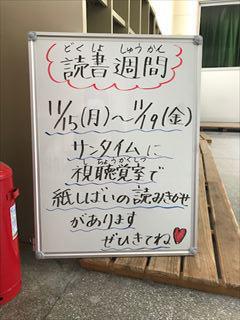 どくしょ しゅうかん
読書週間
11/15(月)〜11/19(金)
サンタイムに
しちょうかくしつ
視聴覚室で
紙しばいの読みきかせ
があります
ぜひきてね♥